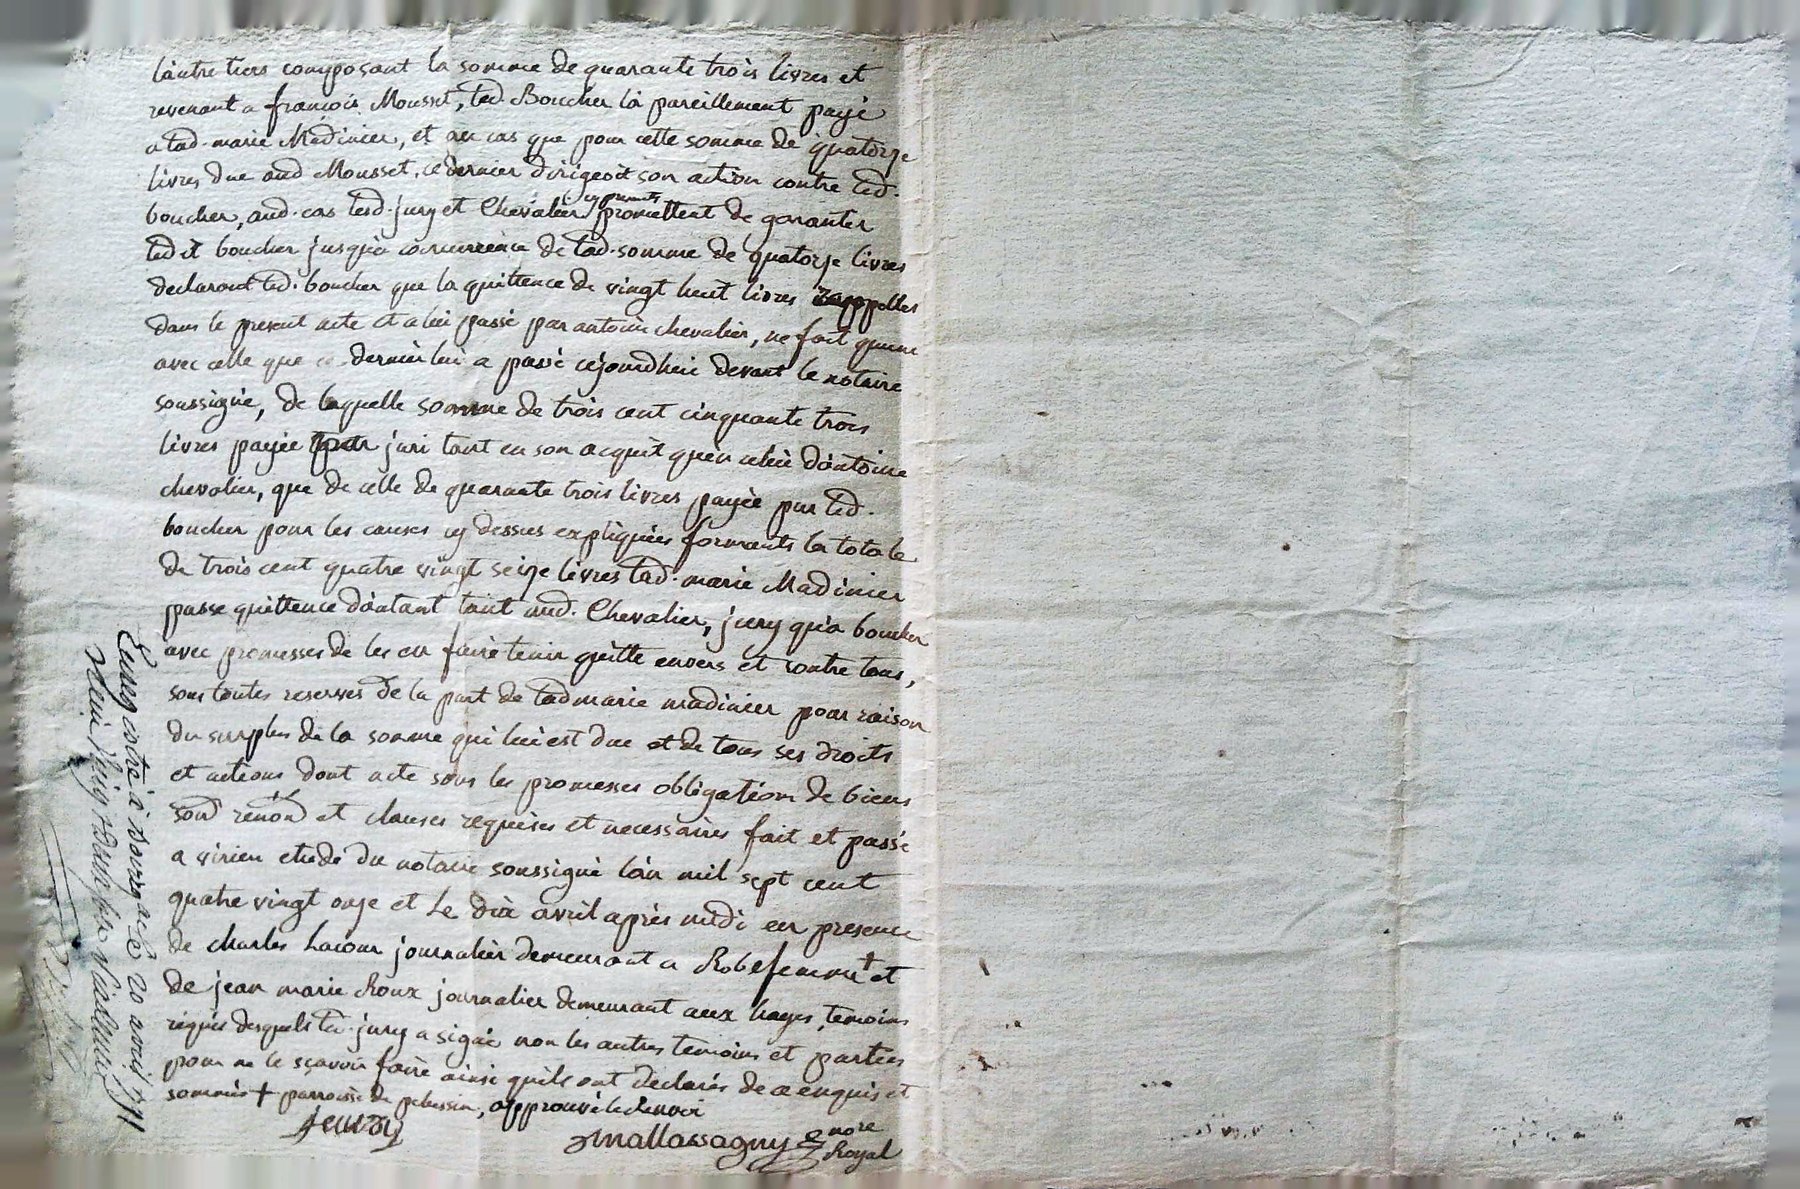 l'autre tiers composant la somme de quarante trois livres et
revenant a françois Mousset, led. Boucher l'a pareillement payé
a lad. marie Madinier, et au cas que pour cette somme de quatorze
livres due aud Mousset, ce dernier dirigeoit son action contre led.
boucher, aud. cas lesd. jury et Chevalier cy presents promettent de garantir
ledit boucher jusqu'a concurrence de lad. somme de quatorze livres
declarant led. boucher que la quittence de vingt huit livres rappellée
dans le present acte et a lui passé par antoine chevalier, ne fait qu'une
avec celle que ce dernier lui a passé cejourdhui devant le notaire
soussigné, de laquelle somme de trois cent cinquante trois
livres payée par juri tant en son acquit qu'en celui d'antoine
chevalier, que de celle de quarante trois livres payée par led.
boucher pour les causes cy dessus expliquées formants la totale
de trois cent quatre vingt seize livres lad. marie Madinier
passe quittence d'autant tant aud. Chevalier, jury qu'a boucher
avec promesses de les en faire tenir quitte envers et contre tous,
sous toutes reserves de la part de lad marie madinier pour raison
du surplus de la somme qui lui est due et de tous ses droits
et actions dont acte sous les promesses obligation de biens
soud renond et clauses requises et necessaires fait et passé
a virieu etude du notaire soussigné l'an mil sept cent
quatre vingt onze et le dix avril après midi en presence
de charles Lacour journalier demeurant a Robefemme + et
de jean marie Roux journalier demeurant aux hayes, temoins
requis desquels led. jury a signé non les autres temoins et parties
pour ne le sçavoir faire ainsi quils ont déclarés de ce enquis et
sommés + parroisse de pelussin, approuvé le renvoi
jeury
mallassagny nore
Royal
a bourg le 20 avril 1791